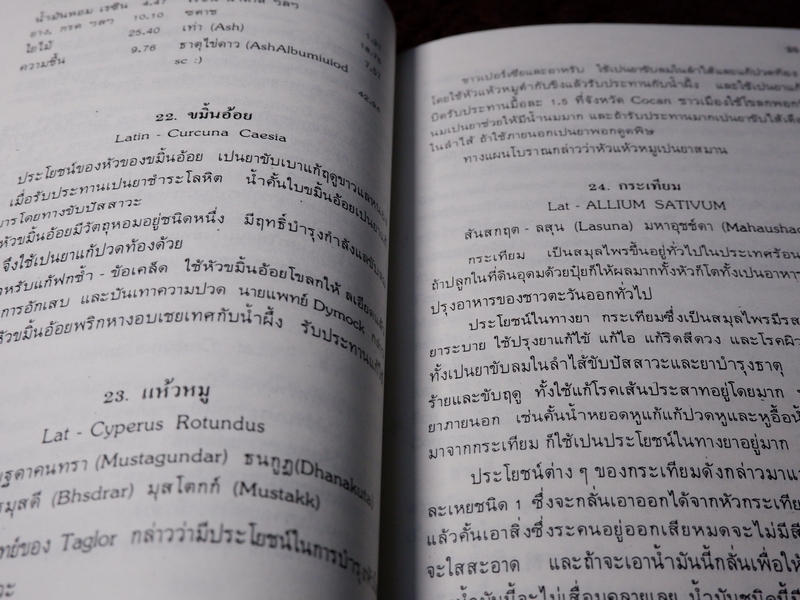 น้ำมันหอม เรซิน 4.47
ยาง, กรด ฯลฯ 10.10
ใยไม้ 25.40 เท่า (Ash)
ความชื้น 9.76 ธาตุไข่ดาว (AshAlbumiuiod 7.57
sc :)
22. ขมิ้นอ้อย
Latin - Curcuna Caesia
ประโยชน์ของหัวของขมิ้นอ้อย เป็นยาขับเบาแก้ฤดูขาว
เมื่อรับประทานเป็นยาชำระโลหิต น้ำคั้นใบขมิ้นอ้อยเป็นยา
การโดยทางขับปัสสาวะ
หัวขมิ้นอ้อยมีวัตถุหอมอยู่ชนิดหนึ่ง มีฤทธิ์บำรุงกำลังและขับลม
จึงใช้เป็นยาแก้ปวดท้องด้วย
หรับแก้ฟกช้ำ - ข้อเคล็ด ใช้หัวขมิ้นอ้อยโขลกให้ ละเอียดแล้ว
การอักเสบ และบันเทาความปวด นายแพทย์ Dymock กล่าว
หัวขมิ้นอ้อยพริกหางอบเชยเทศกับน้ำผึ้ง รับประทานแก้ไข้
23. แห้วหมู
Lat - Cyperus Rotundus
ฐดาคนทรา (Mustagundar) ธนกูฏ(Dhanakuta)
รมุสดี (Bhsdrar) มุสโตกก์ (Mustakk)
ทย์ของ Taglor กล่าวว่ามีประโยชน์ในการบำรุง
วะ
ชาวเปอร์เซียและอาหรับ ใช้เป็นยาขับลมในลำไส้และแก้ปวดท้อง
โดยใช้หัวแห้วหมูตำกับขิงแล้วรับประทานกับน้ำผึ้ง และใช้เป็นยาแก้
บิดรับประทานมื้อละ 1.5 ที่จังหวัด Cocan ชาวเมืองใช้โขลกพอก
นมเป็นยาช่วยให้มีน้ำนมมาก และถ้ารับประทานมากเป็นยาขับไส้เดือน
ในลำไส้ ถ้าใช้ภายนอกเป็นยาพอกดูดพิษ
ทางแผนโบราณกล่าวว่าหัวแห้วหมูเป็นยาสมาน
24. กระเทียม
Lat - ALLIUM SATIVUM
สันสกฤต - ลสุน (Lasuna) มหาอุชช์ดา (Mahaushad
กระเทียม เป็นสมุไพรขึ้นอยู่ทั่วไปในประเทศร้อน
ถ้าปลูกในที่ดินอุดมด้วยปุ๋ยก็ให้ผลมากทั้งหัวก็โตทั้งเป็นอาหาร
ปรุงอาหารของชาวตะวันออกทั่วไป
ประโยชน์ในทางยา กระเทียมซึ่งเป็นสมุไพรมีรส
ยาระบาย ใช้ปรุงยาแก้ไข้ แก้ไอ แก้ริดสีดวง และโรคผิว
ทั้งเป็นยาขับลมในลำไส้ขับปัสสาวะและยาบำรุงธาตุ
ร้ายและขับฤดู ทั้งใช้แก้โรคเส้นประสาทอยู่โดยมาก
ยาภายนอก เช่นคั้นน้ำหยอดหูแก้แก้ปวดหูและหูอื้อ
มาจากกระเทียม ก็ใช้เป็นประโยชน์ในทางยาอยู่มาก
ประโยชน์ต่าง ๆ ของกระเทียมดังกล่าวมา
ละเหยชนิด 1 ซึ่งจะกลั่นเอาออกได้จากหัวกระเทียม
แล้วคั้นเอาสิ่งซึ่งระคนอยู่ออกเสียหมดจะไม่มีสี
จะใสสะอาด และถ้าจะเอาน้ำมันนี้กลั่นเพื่อให้
น้ำมันนี้จะไม่เสื่อมคลายเลย น้ำมันชนิดนี้มี